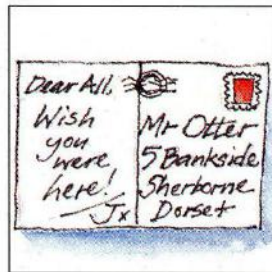 Dear All,
Wish
you
were
here!
Jx
Mr Otter
5 Bankside
Sherborne
Dorset